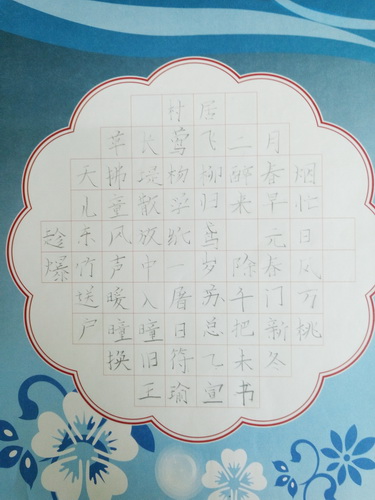 村居
草长莺飞二月
天拂堤杨柳醉春烟
儿童散学归来早忙
趁东风放纸鸢 元日
爆竹声中一岁除春风
送暖入屠苏千门万
户曈曈日总把新桃
换旧符乙未冬
王瑜宣书